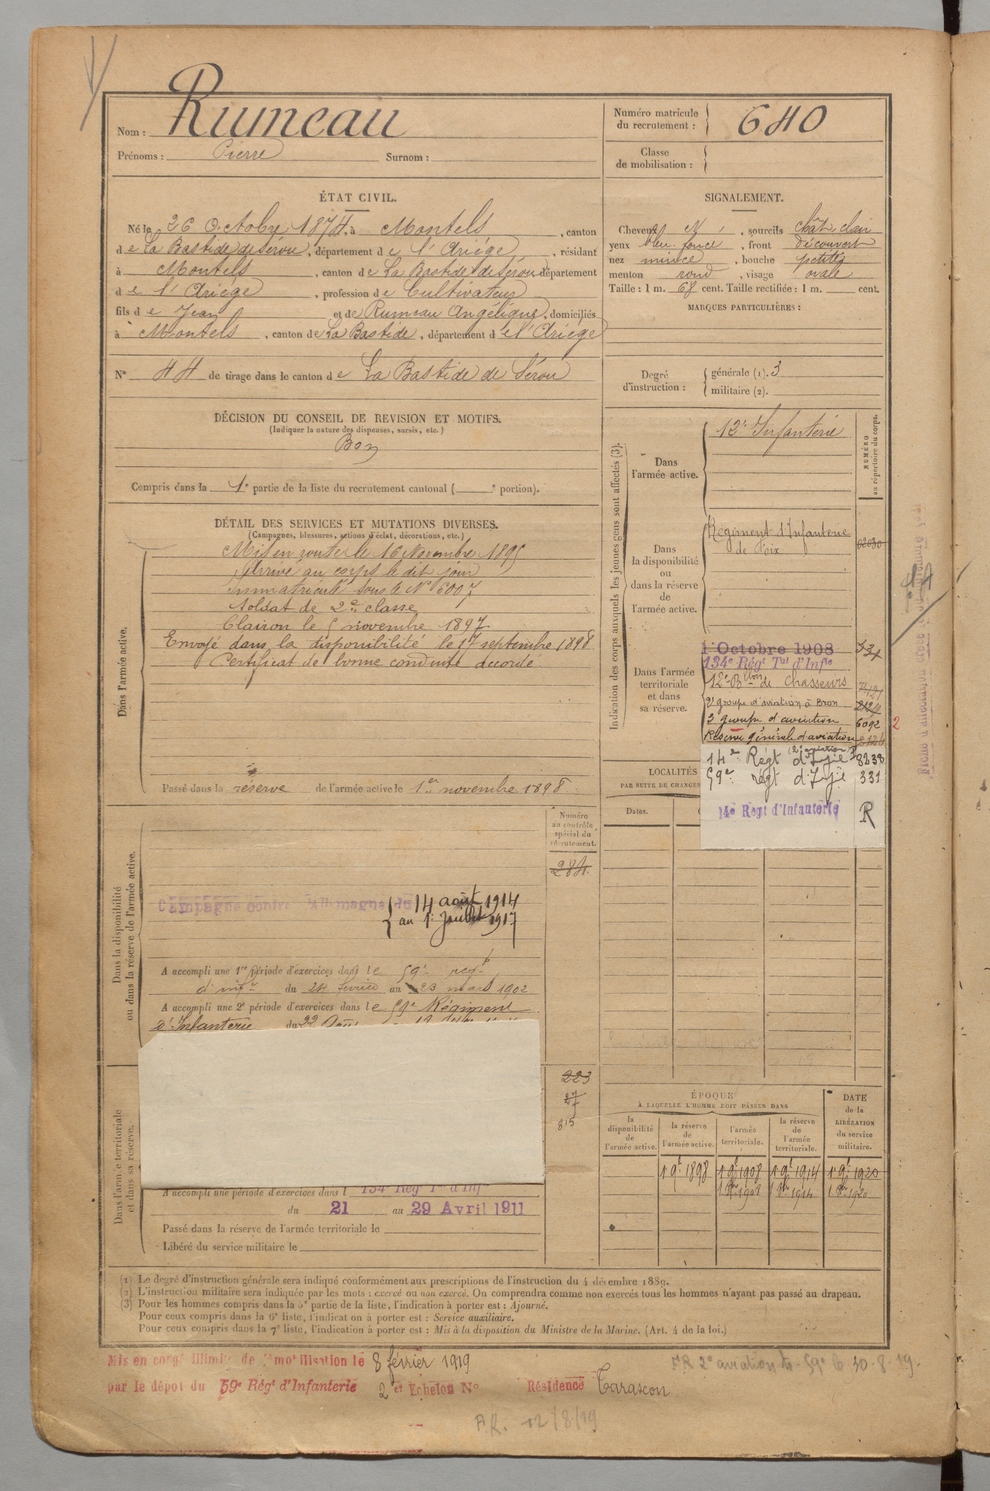 Nom : Rumeau
Prénoms : Pierre Surnom :
Numéro matricule du recrutement : 640
Classe de mobilisation :
ÉTAT CIVIL.
Né le 26 Octobre 1874, à Montels, canton
de La Bastide de Sérou, département de l'Ariége, résidant
à Montels, canton de La Bastide de Sérou département
de l'Ariége, profession de Cultivateur
fils de Jean et de Rumeau Angélique, domiciliés
à Montels, canton de La Bastide, département de l'Ariége
N° 44 de tirage dans le canton de La Bastide de Sérou
SIGNALEMENT.
Cheveux et, sourcils chât. clair
yeux bleu foncé, front découvert
nez mince, bouche petite
menton rond, visage ovale
Taille : 1 m. 68 cent. Taille rectifiée : 1 m. cent.
MARQUES PARTICULIÈRES :
Degré d'instruction : générale (1). 3
militaire (2).
DÉCISION DU CONSEIL DE REVISION ET MOTIFS.
(Indiquer la nature des dispenses, sursis, etc.)
Bon
Compris dans la 1e partie de la liste du recrutement cantonal ( e portion).
DÉTAIL DES SERVICES ET MUTATIONS DIVERSES.
(Campagnes, blessures, actions d'éclat, décorations, etc.)
Dans l'armée active.
Mis en route le 16 Novembre 1895
Arrivé au corps le dit jour
immatriculé sous le N° 6007
Soldat de 2e classe
Clairon le 5 novembre 1897
Envoyé dans la disponibilité le 17 septembre 1898
Certificat de bonne conduite accordé
Passé dans la réserve de l'armée active le 1er novembre 1898
Indication des corps auxquels les jeunes gens sont affectés (3).
NUMÉRO au répertoire du corps.
Dans l'armée active.
12e Infanterie
Dans la disponibilité ou dans la réserve de l'armée active.
Régiment d'Infanterie
de Foix
Dans l'armée territoriale et dans sa réserve.
1 Octobre 1908
134e Régt Tal d'Infie
12e Bllon de Chasseurs
2e groupe d'aviation à Bron
3 groupe d'aviation 6092 2
Réserve générale d'aviation
14e Régt d'Infie 8238
59e regt d'Infie 331
14e Régt d'Infanterie R
LOCALITÉS
PAR SUITE DE CHANGE
Dates.
Dans la disponibilité ou dans la réserve de l'armée active.
Numéro au contrôle spécial du recrutement.
284
Campagne contre Allemagne du 14 août 1914
au 1er Juillet 1917
A accompli une 1re période d'exercices dans le 59e regt
d'infie du 24 février au 23 mars 1902
A accompli une 2e période d'exercices dans le 59e Régiment
d'Infanterie du 22
223
815
Dans l'armée territoriale et dans sa réserve.
A accompli une période d'exercices dans l 134e Régt Tal d'Inf
du 21 au 29 Avril 1911
Passé dans la réserve de l'armée territoriale le
Libéré du service militaire le
ÉPOQUE
À LAQUELLE L'HOMME DOIT PASSER DANS
la disponibilité de l'armée active.
la réserve de l'armée active.
l'armée territoriale.
la réserve de l'armée territoriale.
DATE de la LIBÉRATION du service militaire.
1 9bre 1898 1 9bre 1908 1 9bre 1914 1 9bre 1920
1 8bre 1908 1 8bre 1914 1 8bre 1920
(1) Le degré d'instruction générale sera indiqué conformément aux prescriptions de l'instruction du 4 décembre 1889.
(2) L'instruction militaire sera indiquée par les mots : exercé ou non exercé. On comprendra comme non exercés tous les hommes n'ayant pas passé au drapeau.
(3) Pour les hommes compris dans la 5e partie de la liste, l'indication à porter est : Ajourné.
Pour ceux compris dans la 6e liste, l'indication à porter est : Service auxiliaire.
Pour ceux compris dans la 7e liste, l'indication à porter est : Mis à la disposition du Ministre de la Marine. (Art. 4 de la loi.)
Mis en congé illimité de démobilisation le 8 février 1919
par le dépôt du 59e Régt d'Infanterie 2e Echelon N° Résidence Tarascon